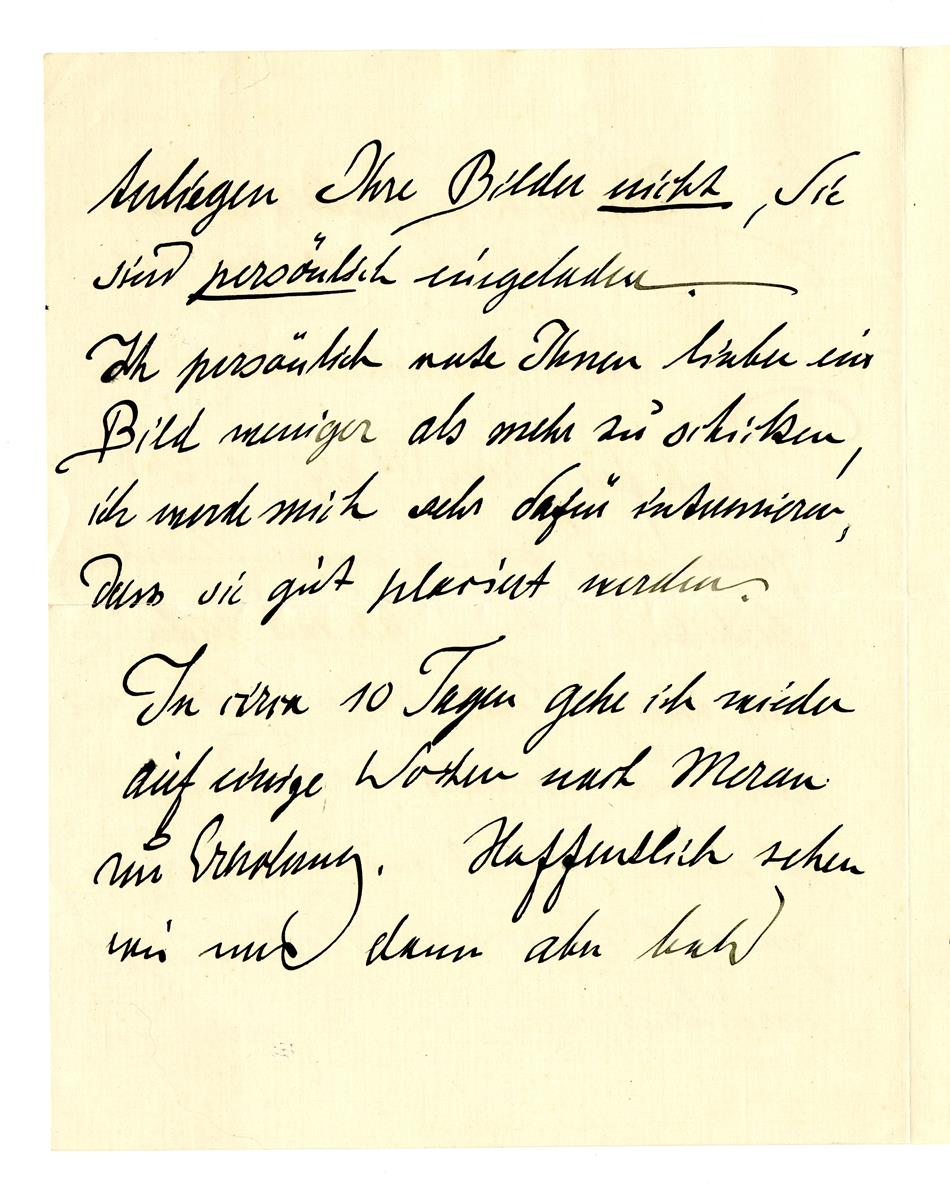 terliegen Ihre Bilder nicht, Sie
sind persönlich eingeladen.
Ich persönlich rate Ihnen lieber ein
Bild weniger als mehr zu schicken,
ich werde mich sehr dafür interessieren,
dass sie gut placiert werden.
In circa 10 Tagen gehe ich wieder
auf einige Wochen nach Meran
zur Erholung. Hoffentlich sehen
wir uns dann aber bald